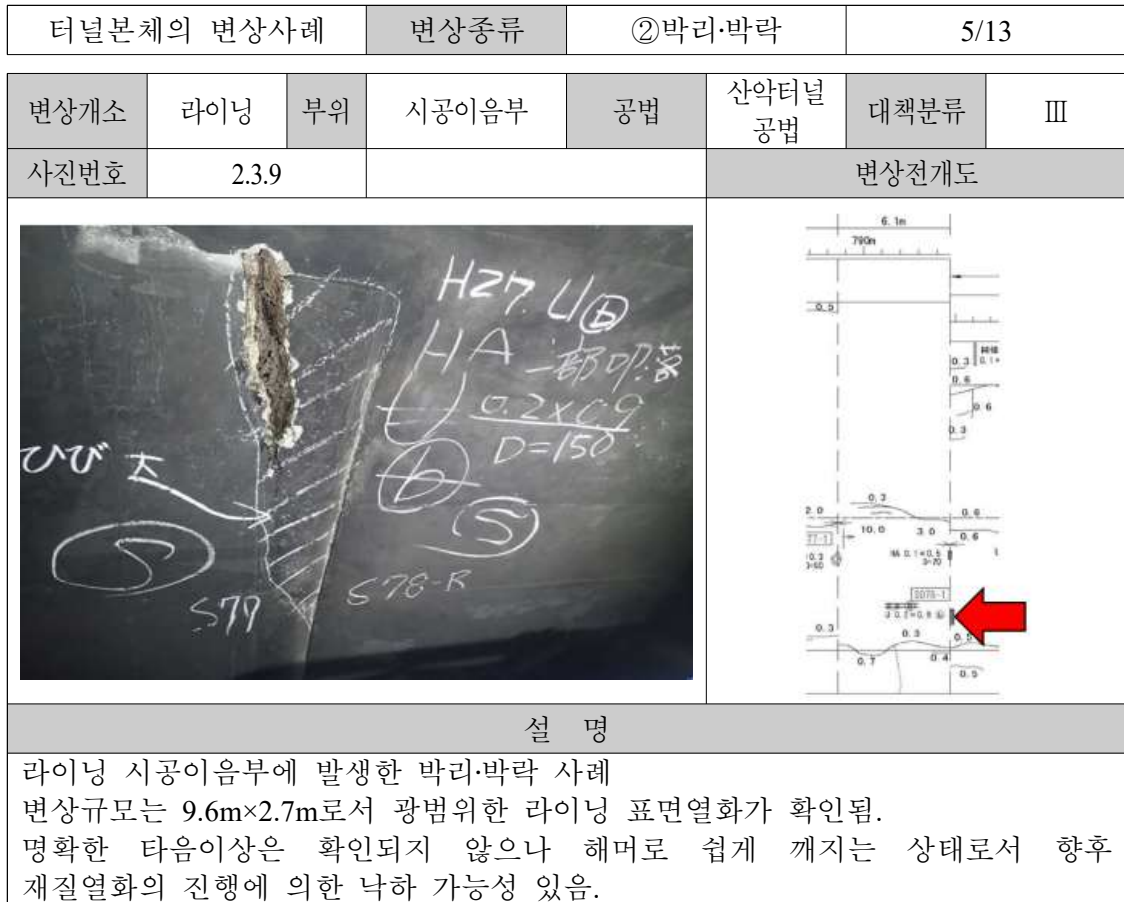 터널본체의 변상사례 변상종류 ②박리·박락 5/13
변상개소 라이닝 부위 시공이음부 공법 산악터널 공법 대책분류 Ⅲ
사진번호 2.3.9 변상전개도
H27. U
HA
0.2×0.9
D=150
ひび 大
S
S77
S78-R
6.1m
790m
0.5
0.3
0.6
0.6
0.3
0.3
2.0
0.6
10.0
3.0
0.6
0.3
0.3
0.5
0.7
0.4
0.5
설 명
라이닝 시공이음부에 발생한 박리·박락 사례
변상규모는 9.6m×2.7m로서 광범위한 라이닝 표면열화가 확인됨.
명확한 타음이상은 확인되지 않으나 해머로 쉽게 깨지는 상태로서 향후
재질열화의 진행에 의한 낙하 가능성 있음.